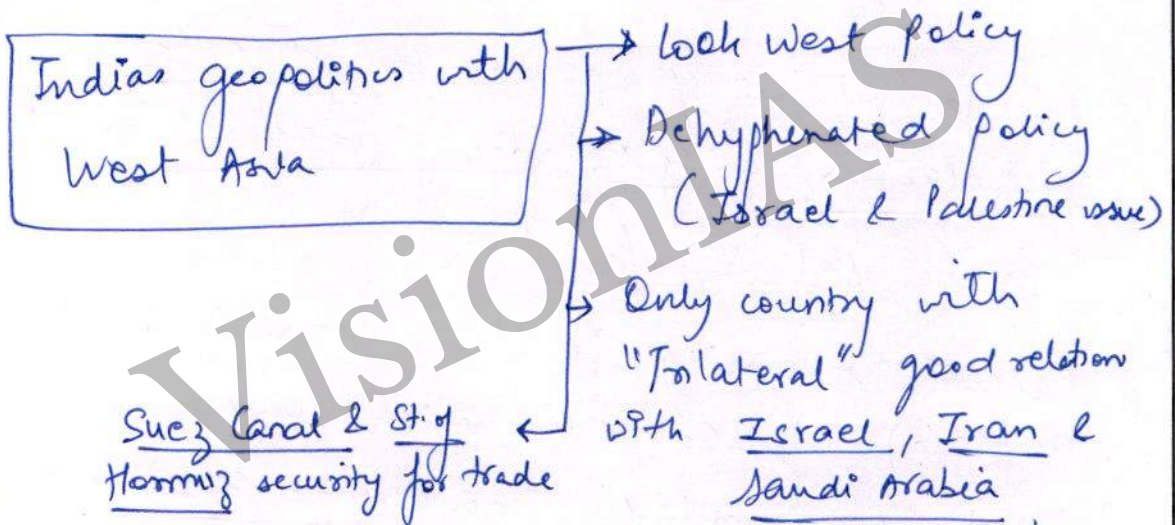 Indias geopolitics with
West Asia
Look West Policy
Dehyphenated policy
(Israel & Palestine issue)
Only country with
"Trilateral" good relation
with Israel, Iran &
Saudi Arabia
Suez Canal & St. of
Hormuz security for trade
VisionIAS